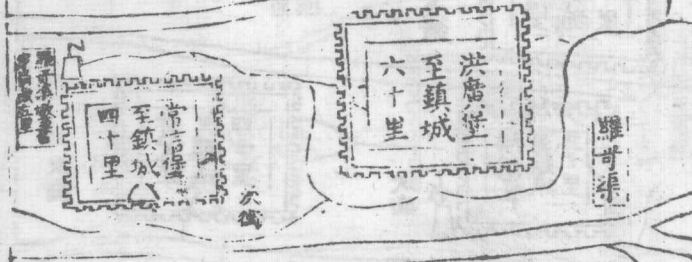 羅哥渠
洪廣堡
至鎮城
六十里
常信堡
至鎮城
四十里